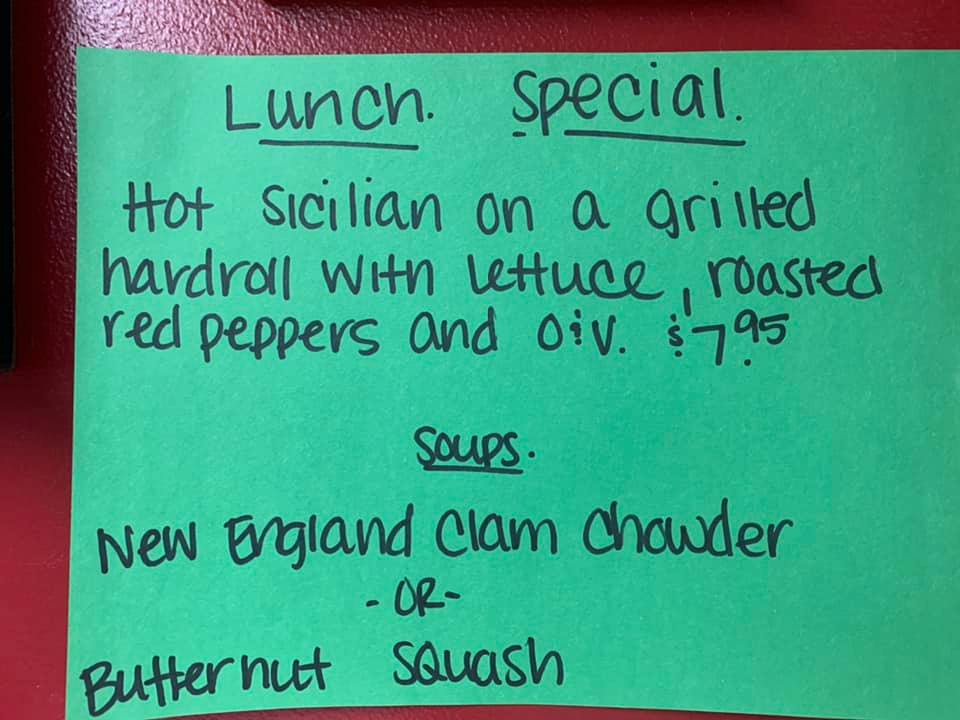 Lunch. Special.
Hot Sicilian on a grilled
hardroll with lettuce, roasted
red peppers and O&V. $7.95
Soups.
New England Clam Chowder
-OR-
Butternut Squash